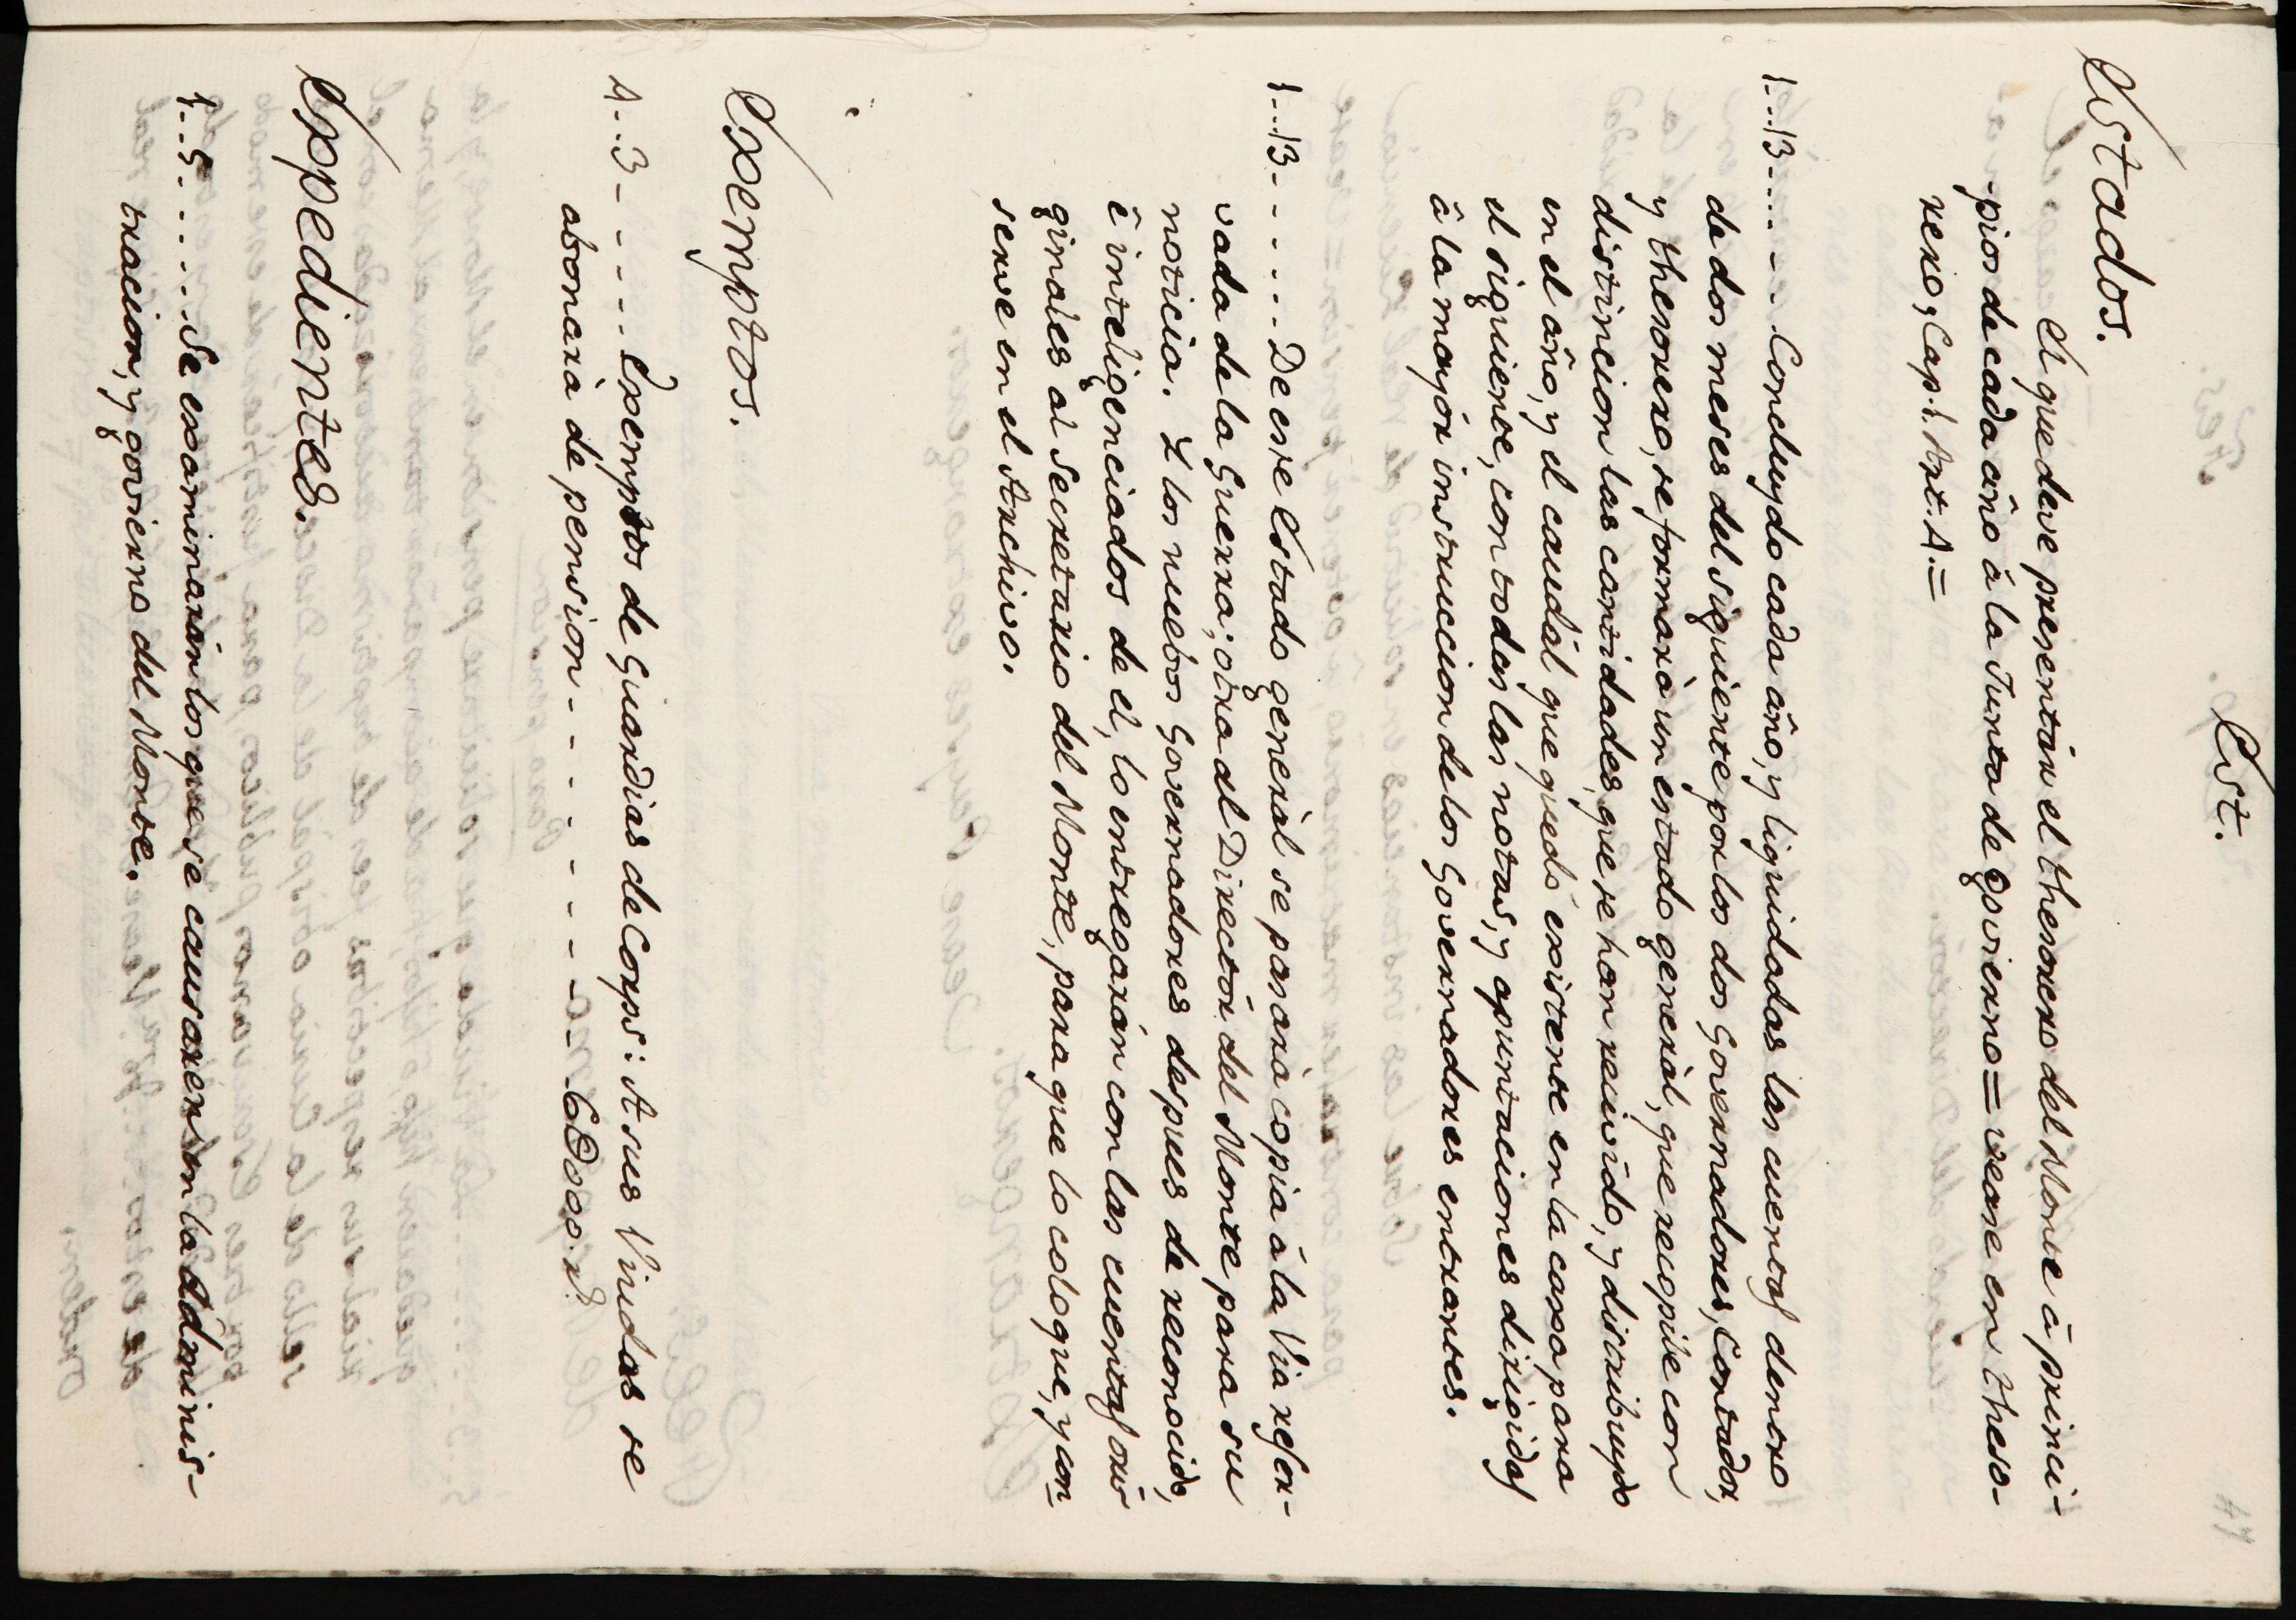 Est.
47
Estados.
El que deve presentár el thesorero del Monte á princi-
pios de cada año á la Junta de govierno = vease en theso-
rero, Cap. 1. Art. 4. =
1...13.... Concluydo cada año, y liquidadas las cuentas dentro
de dos meses del siguiente por los dos Governadores, Contador,
y thesorero, se formará un estado generál, que recopile con
distincion las cantidades, que se han recivido, y distribuydo
en el año, y el caudál que quedó existente en la caxa para
el siguiente, con todas las notas, y apuntaciones dirigidas
â la mayór instruccion de los Governadores entrantes.
1...13...... De este Estado generál se pasará copia â la Via reser-
vada de la Guerra; otra al Directór del Monte para su
noticia. Y los nuebos Governadores despues de reconocido,
ê inteligenciados de el, lo entregarán con las cuentas ori-
ginales al Secretario del Monte, para que lo coloque, y con-
serve en el Archivo.
Exemptos.
4...3..... Exemptos de Guardias de Corps: A sus Viudas se
abonará de pension - - - - - - - - 6000 r.s
Expedientes.
1...5...... Se examinarán los que se causaren en la adminis-
tracion, y govierno del Monte.